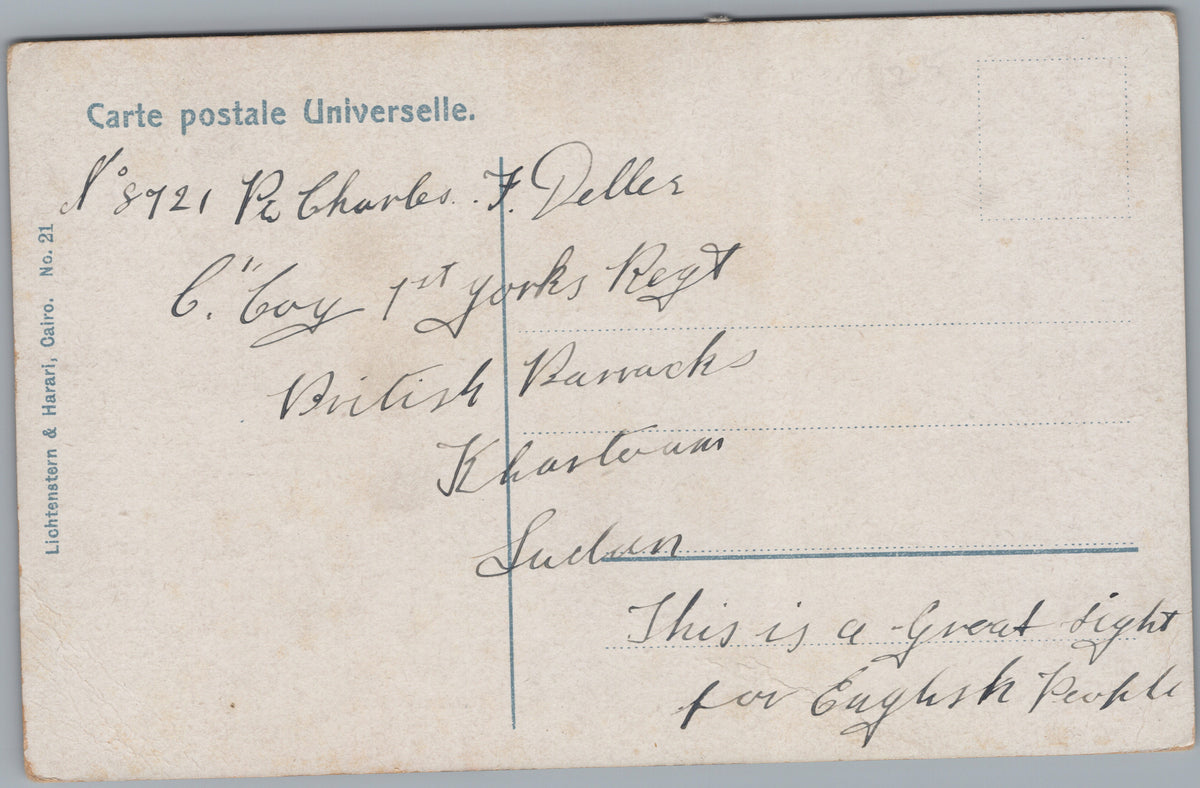 Carte postale Universelle.
No 8721 Pte Charles. F. Deller
C." Coy 1st Yorks Regt
British Barracks
Khartoum
Sudan
This is a Great sight
for English People
Lichtenstern & Harari, Cairo. No. 21